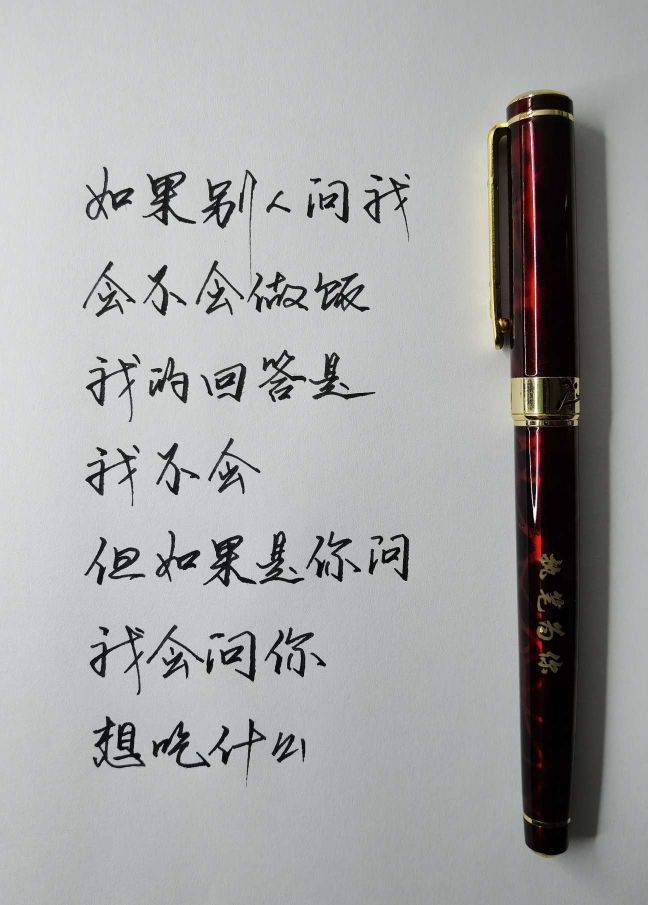 如果别人问我
会不会做饭
我的回答是
我不会
但如果是你问
我会问你
想吃什么
执笔为你